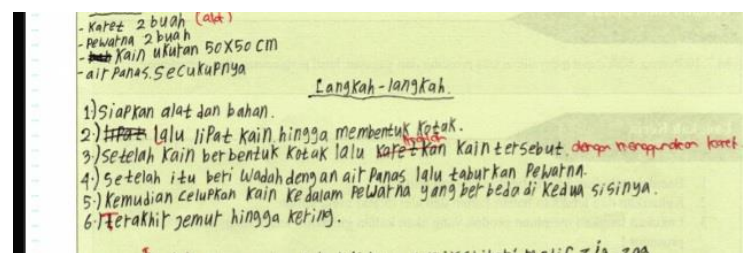 - Karet 2 buah (alat)
- Pewarna 2 buah
- Kain ukuran 50x50 cm
- air panas. secukupnya
Langkah-langkah.
1.) Siapkan alat dan bahan.
2.) lalu lipat kain hingga membentuk kotak.
3.) Setelah kain berbentuk kotak lalu karetkan kain tersebut. dengan menggunakan karet
4.) Setelah itu beri wadah dengan air panas lalu taburkan pewarna.
5.) Kemudian celupkan kain kedalam pewarna yang berbeda di kedua sisinya.
6.) Terakhir jemur hingga kering.